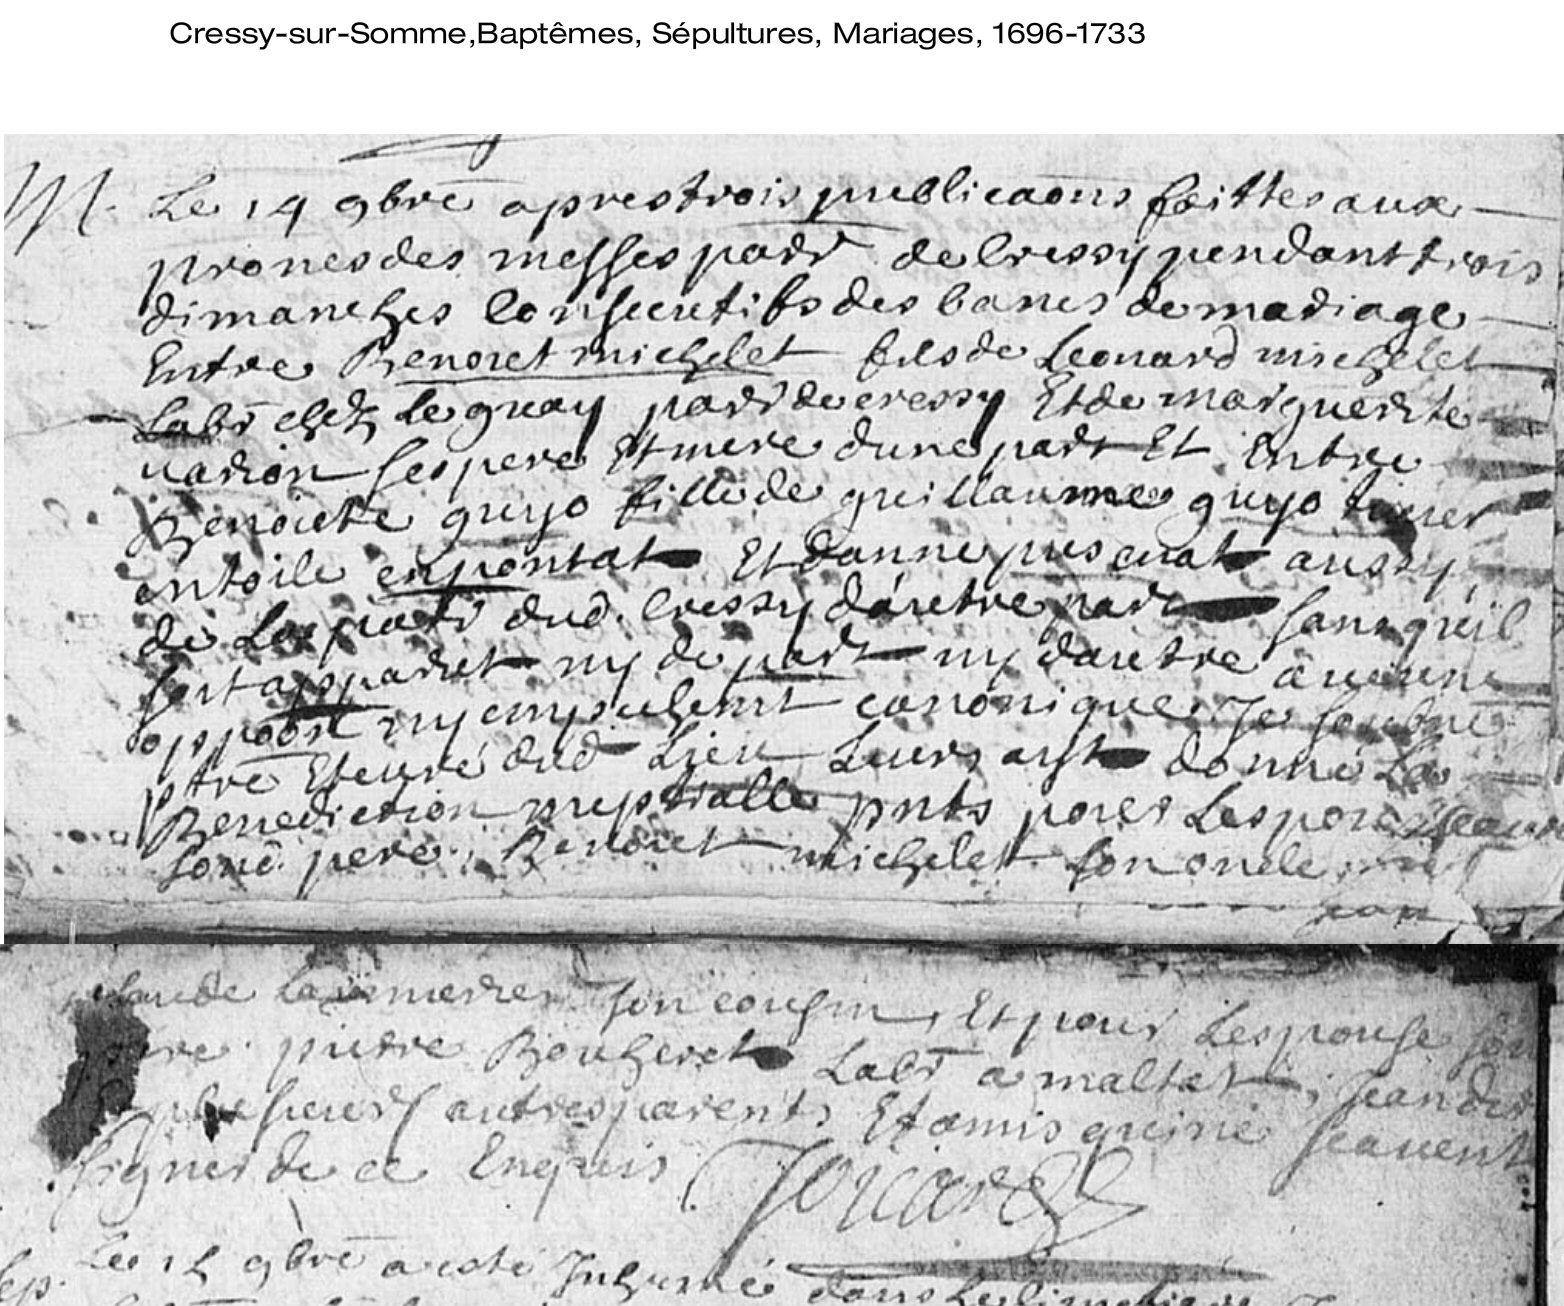 Cressy-sur-Somme,Baptêmes, Sépultures, Mariages, 1696-1733
M. Le 14 9bre apres trois publicaons faittes aux
prones des messes parr de Cressy pendant trois
dimanches Consecutifs des bancs de mariage
Entre Benoiet michelet fils de Leonard michelet
Labr chez Le guay parr de cressy Et de marguerite
narion ses pere Et mere dune part Et Entre
Benoiete guyo fille de guillaume guyo tixier
entoile Et danne aussy
de La parr dud. Cressy dautre part sans quil
soit apparut ny de part ny dautre aucune
opposn ny empechemt canonique Je soubne
ptre Et curé dud Lieu Leurs ayt donné La
Benediction nuptialle pnts pour Lespoux
sond. pere, Benoiet michelet son oncle
claude son cousin, Et pour Lespouse son
pierre Boucheret Labr a maltat, Jean
plusieurs autres parents Et amis qui ne scavent
signer de ce Enquis
Sep. Le 15 9bre a esté Inhumé dans Le Cimetiere